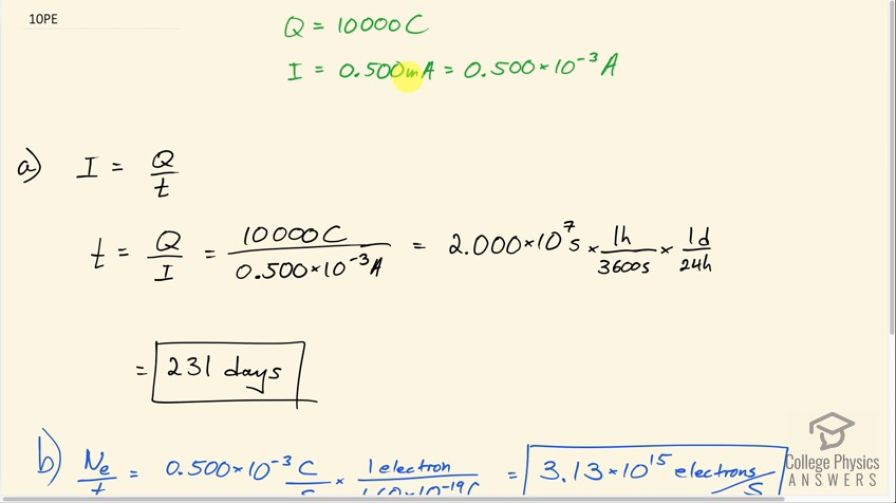 10PE
Q = 10000C
I = 0.500mA = 0.500×10⁻³A
a) I = Q/t
t = Q/I = 10000C/0.500×10⁻³A = 2.000×10⁷s × 1h/3600s × 1d/24h
= 231 days
b) Ne/t = 0.500×10⁻³ C/s × 1electron/1.60×10⁻¹⁹C = 3.13×10¹⁵ electrons/s
College Physics
ANSWERS